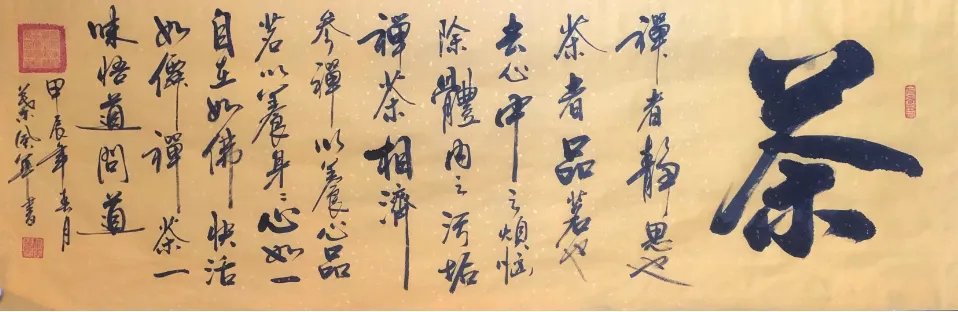 茶
禪者静思也
茶者品茗也
去心中之煩惱
除體内之污垢
禪茶相濟
參禪以養心品
茗以養身〻心如一
自在如佛快活
如僊禪茶一
味悟道問道
甲辰年春月
書